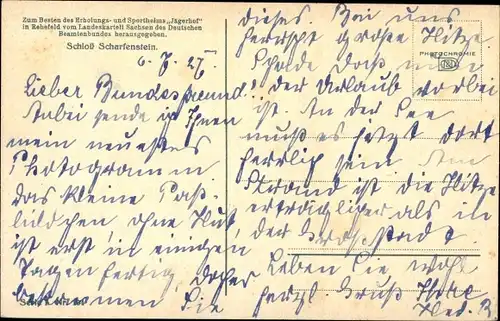 Zum Besten des Erholungs- und Sportheims „Jägerhof"
in Rehefeld vom Landeskartell Sachsen des Deutschen
Beamtenbundes herausgegeben.
Schloß Scharfenstein.
6. 7. 27.
Lieber Bundesfreund!
Anbei sende ich Ihnen
mein neuestes
Photogramm.
das kleine Paß-
bildchen, ohne Hut,
ist erst in einigen
Tagen fertig, daher
bekommen Sie
dieses. Bei uns
herrscht große Hitze.
Schade daß
der Urlaub vorbei
ist. An der See
muß es jetzt dort
herrlich sein. Am
Strand ist die Hitze
erträglicher als in
der Großstadt.
Leben Sie wohl
herzl. Gruß Ihre
Hed. R.
PHOTOCHROMIE